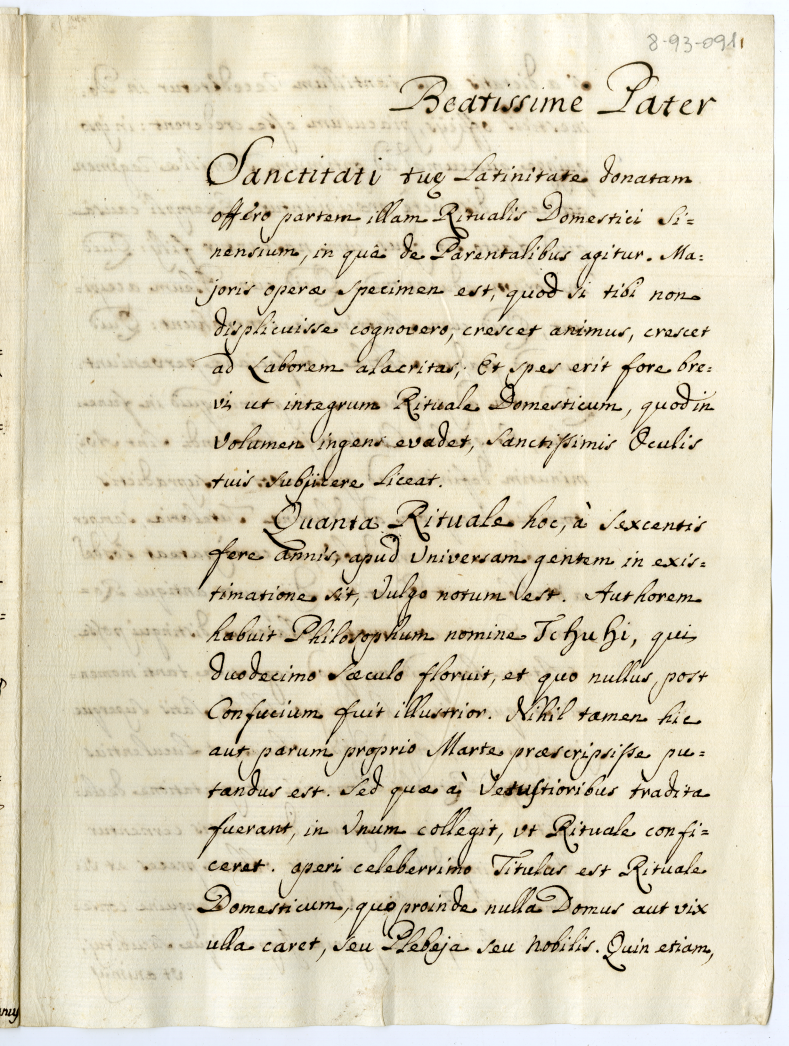 8-93-091
Beatissime Pater
Sanctitati tuę Latinitate donatam
offero partem illam Ritualis Domestici Si=
nensium, in quâ de Parentalibus agitur. Ma=
joris operæ specimen est, quod si tibi non
displicuisse cognovero, crescet animus, crescet
ad Laborem alacritas; Et spes erit fore bre=
vi, ut integrum Rituale Domesticum, quod in
Volumen ingens evadet, Sanctissimis Oculis
tuis subjicere Liceat.
Quanta Rituale hoc, à sexcentis
fere annis, apud Universam gentem in exis=
timatione sit, Vulgo notum est. Authorem
habuit Philosophum nomine Tchuhi, qui
duodecimo sæculo floruit, et quo nullus post
Confucium fuit illustrior. Nihil tamen hic
aut parum proprio Marte præscripsisse pu=
tandus est. Sed quæ à Vetustioribus tradita
fuerant, in Vnum collegit, vt Rituale confi=
ceret. operi celeberrimo Titulus est Rituale
Domesticum, quo proinde nulla Domus aut vix
ulla caret, seu Plebeja seu nobilis. Quin etiam,